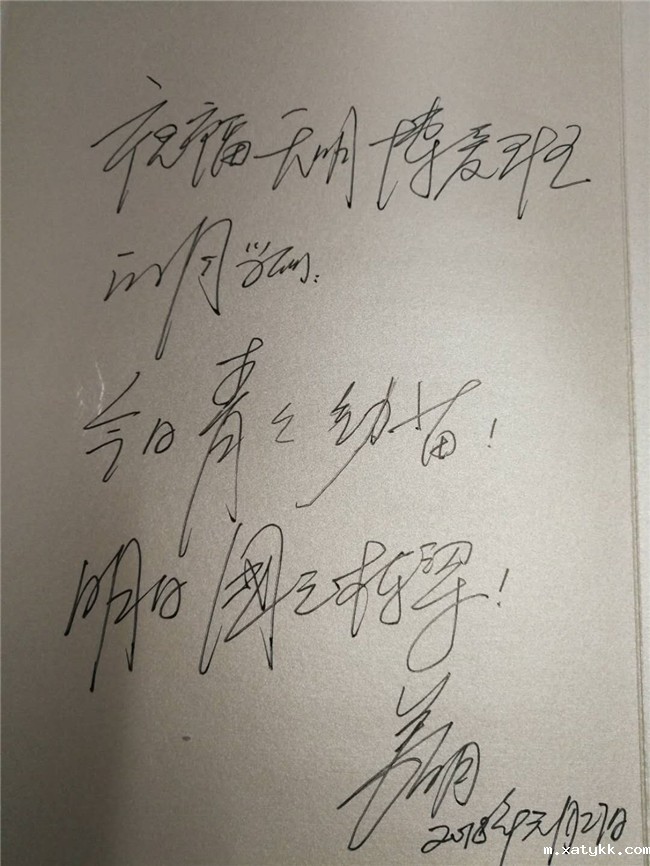 祝福天明博爱班
的同学们:
今日青青幼苗!
明日国之栋梁!
2018年元月27日
m.xatykk.com